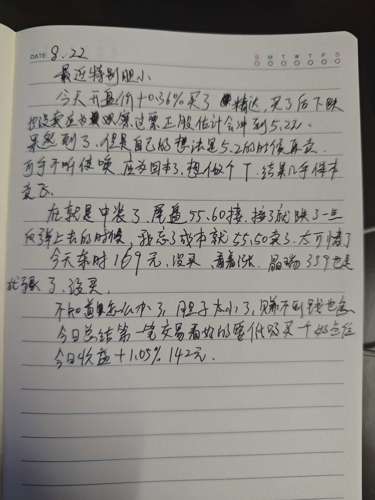 DATE 8.22
S M T W T F S
最近特别胆小
今天开盘价+0.36%买了 精达,买了后下跌
这票正股估计会冲到5.2元
果然到了,但是自己的想法是5.2的时候再卖
可手不听使唤 想做个T,结果几乎保本
卖飞
尾盘55.60接,接了就跌了一点
反弹上去的时候,我忘了成本就55.50卖了,太可惜了
今天东时169元,没买 359也是
就强了,没买
不知道怎么办了,胆子太小了,赚不到钱也
今日总结第一笔交易看好的要低吸买
今日收益+1.05% 142元.